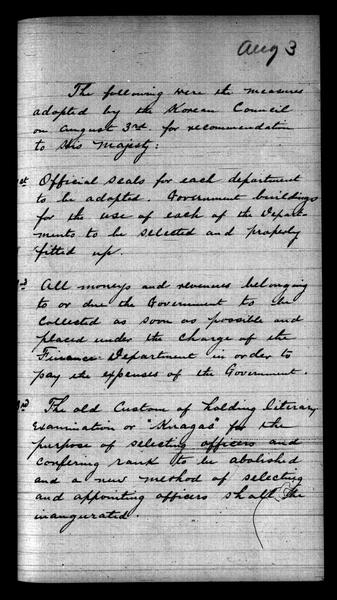 Aug 3
The following were the measures
adopted by the Korean Council
on August 3rd for recommendation
to His Majesty:
1st Official seals for each department
to be adopted. Government buildings
for the use of each of the Depart-
ments to be selected and properly
fitted up.
All moneys and revenues belonging
to or due the Government to be
collected as soon as possible and
placed under the charge of the
Finance Department in order to
pay the expenses of the Government.
3rd The old Custom of holding literary
examination or "Kwagas" for the
purpose of selecting officers and
confering rank to be abolished
and a new method of selecting
and appointing officers shall be
inaugurated.